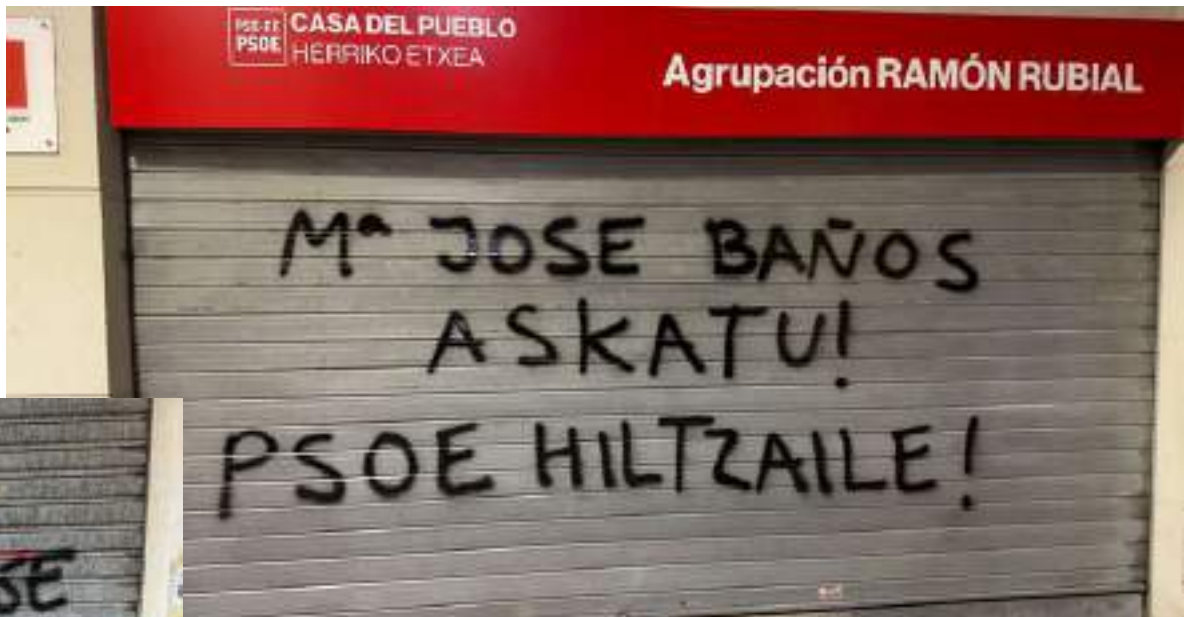 PSE-EE
PSOE
CASA DEL PUEBLO
HERRIKO ETXEA
Agrupación RAMÓN RUBIAL
Mª JOSE BAÑOS
ASKATU!
PSOE HILTZAILE!
SE